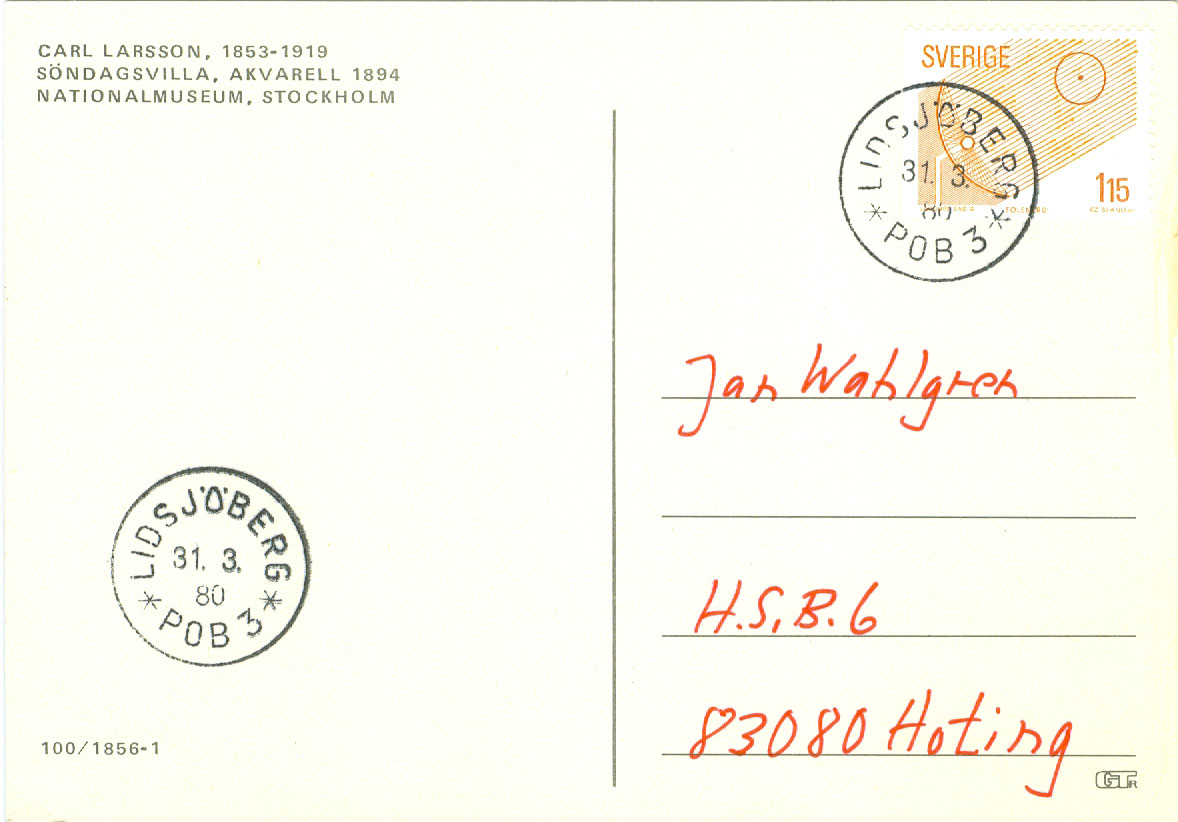 CARL LARSSON, 1853-1919
SÖNDAGSVILLA, AKVARELL 1894
NATIONALMUSEUM, STOCKHOLM
SVERIGE
115
LIDSJÖBERG
31. 3.
80
* POB 3 *
Jan Wahlgren
H.S.B. 6
83080 Hoting
LIDSJÖBERG
31. 3.
80
* POB 3 *
100/1856-1
GT R